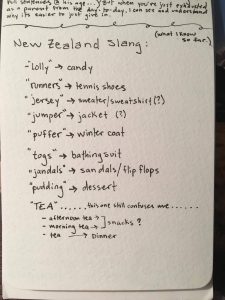 full sentences @ his age... / But when you're just exhausted
as a parent from the day-to-day, I can see and understand
why its easier to just give in.
(what I know so far.)
New Zealand Slang:
-"lolly" → candy
"runners" → tennis shoes
"jersey" → sweater/sweatshirt(?)
"jumper" → jacket (?)
"puffer" → winter coat
"togs" → bathing suit
"jandals" → sandals/flip flops
"pudding" → dessert
"TEA" ...... this one still confuses me......
- afternoon tea →
- morning tea → ] snacks?
- tea → Dinner